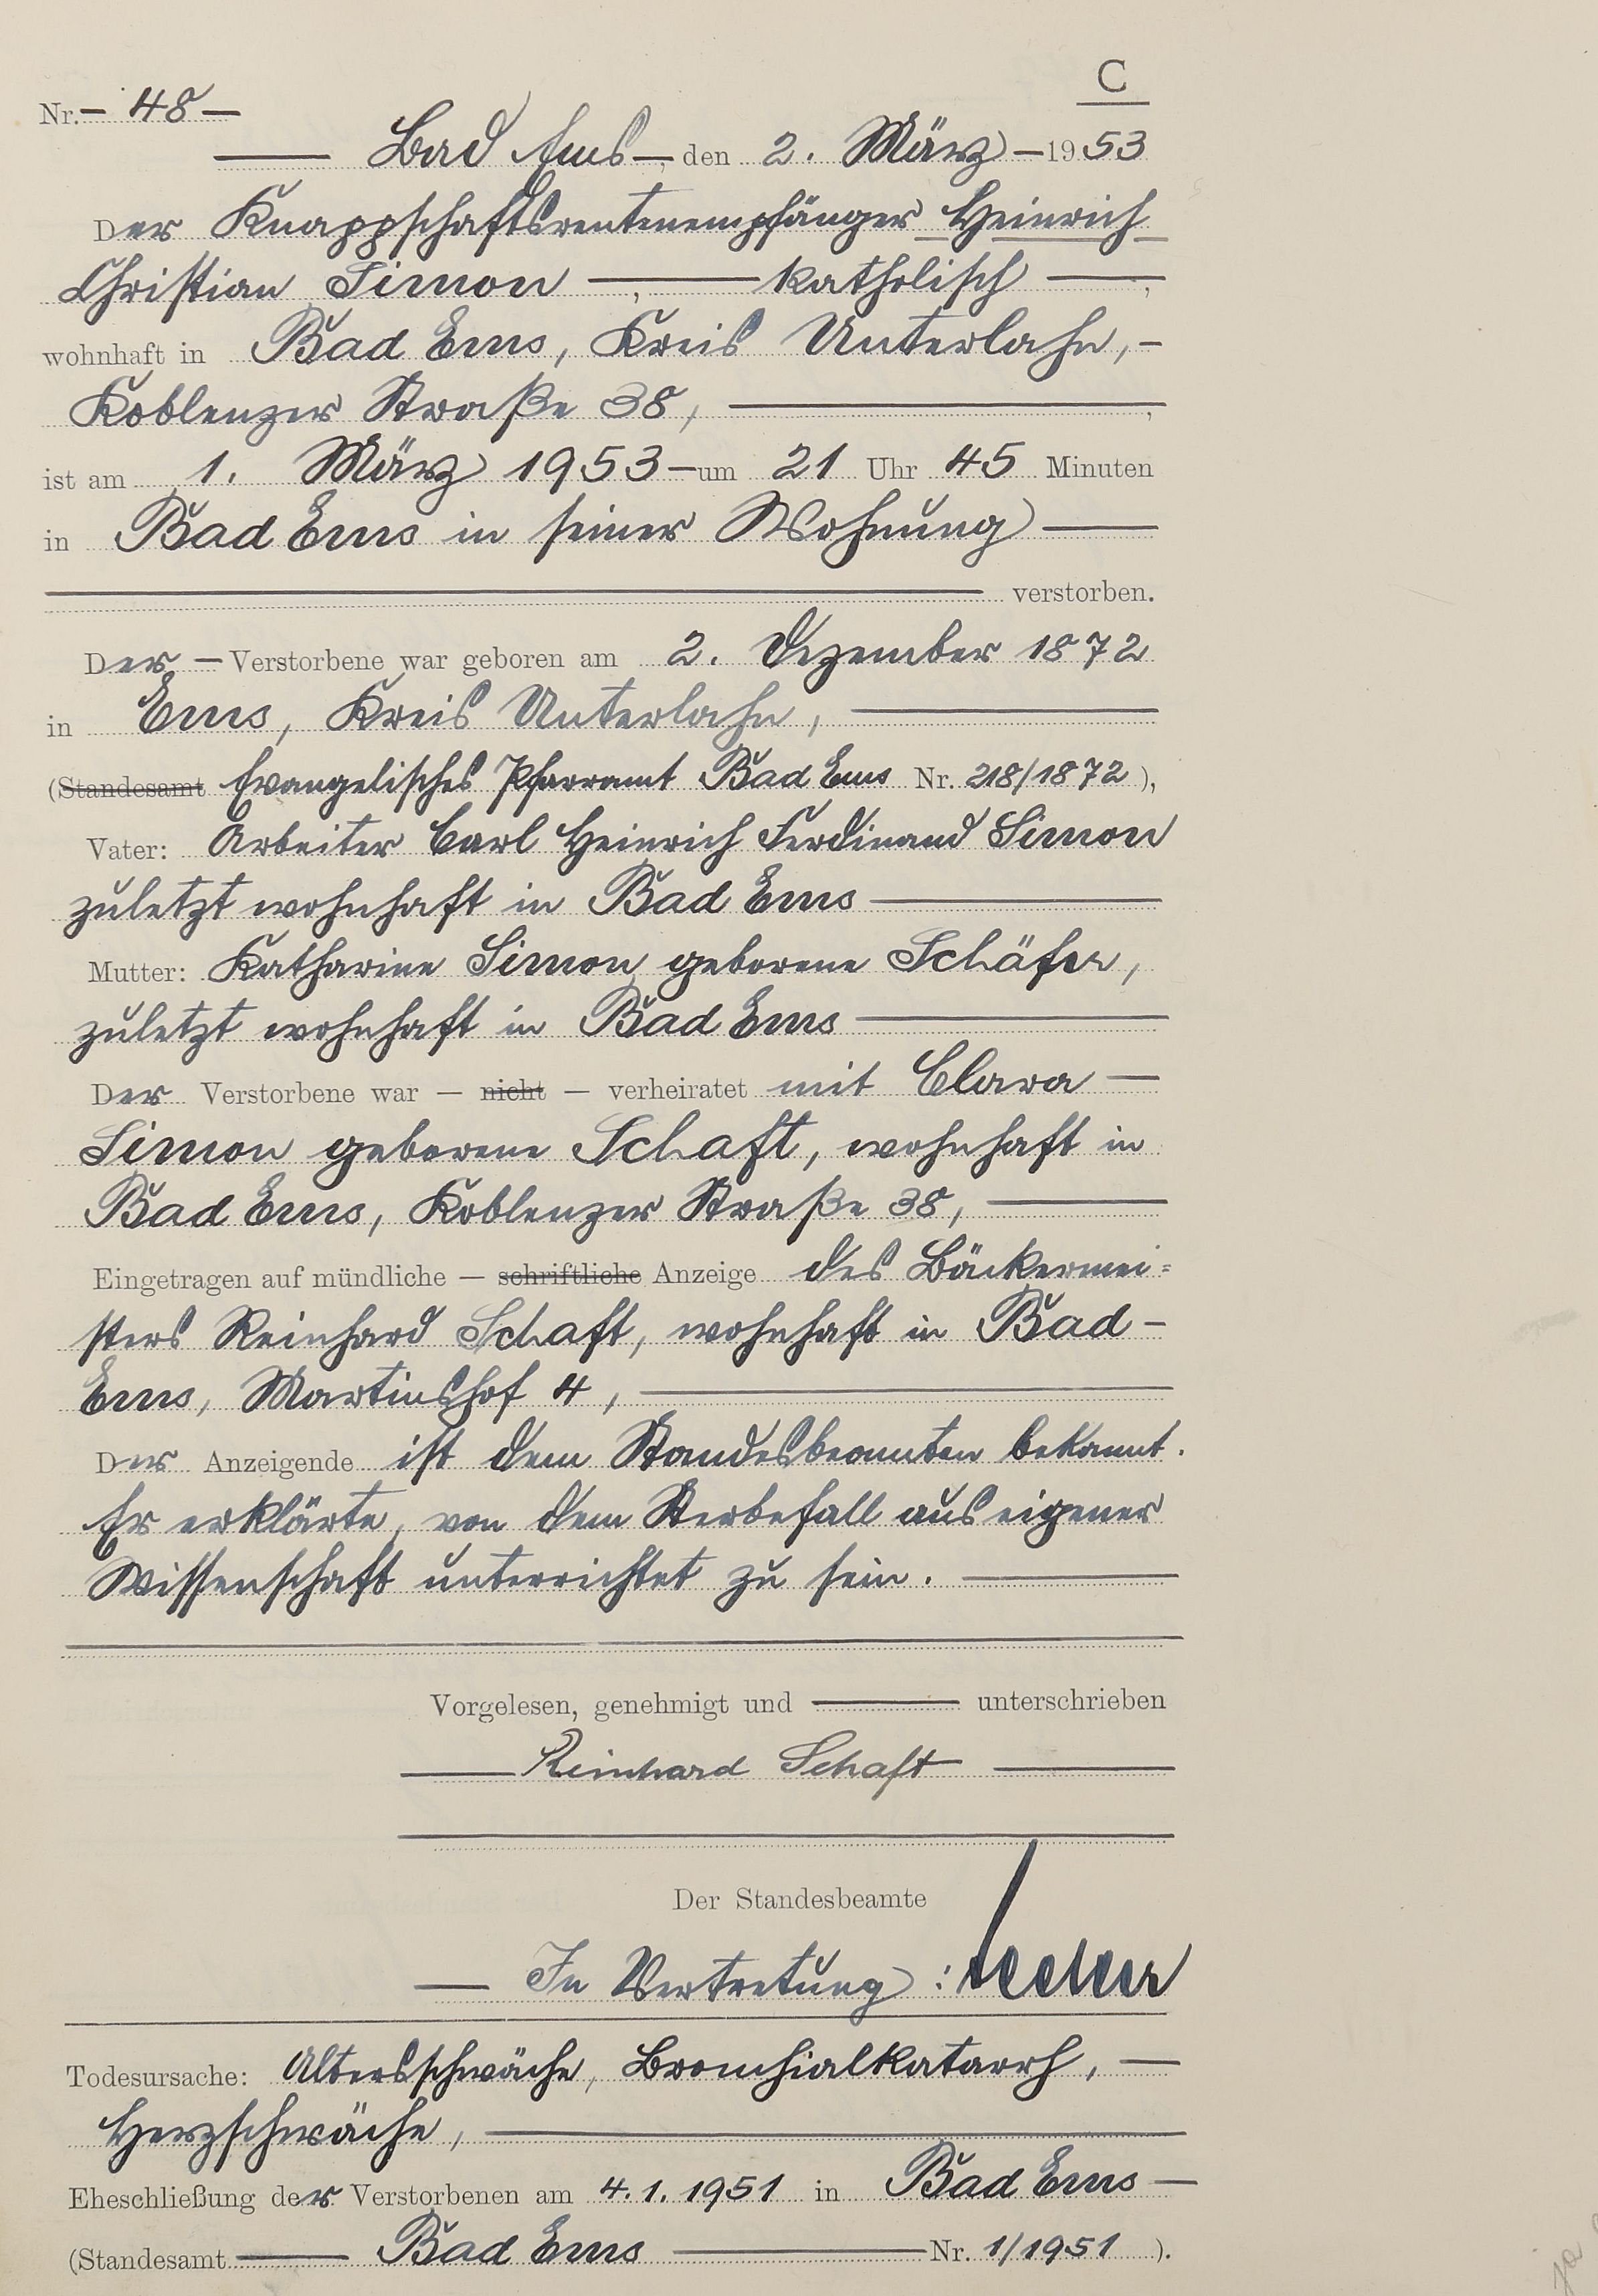 C
Nr. — 48 —
Bad Ems —, den 2. März — 1953
Der Knappschaftsrentenempfänger Heinrich
Christian Simon —, — katholisch —,
wohnhaft in Bad Ems, Kreis Unterlahn, —
Koblenzer Straße 38, —,
ist am 1. März 1953 — um 21 Uhr 45 Minuten
in Bad Ems in seiner Wohnung —
— verstorben.
Der — Verstorbene war geboren am 2. Dezember 1872
in Ems, Kreis Unterlahn, —
(Standesamt Evangelisches Pfarramt Bad Ems Nr. 218/1872),
Vater: Arbeiter Carl Heinrich Ferdinand Simon
zuletzt wohnhaft in Bad Ems —
Mutter: Katharine Simon geborene Schäfer,
zuletzt wohnhaft in Bad Ems —
Der Verstorbene war — nicht — verheiratet mit Clara —
Simon geborene Schaft, wohnhaft in
Bad Ems, Koblenzer Straße 38, —
Eingetragen auf mündliche — schriftliche Anzeige des Bäckermei=
sters Reinhard Schaft, wohnhaft in Bad —
Ems, Martinshof 4, —
Der Anzeigende ist dem Standesbeamten bekannt.
Er erklärte, von dem Sterbefall aus eigener
Wissenschaft unterrichtet zu sein. —
Vorgelesen, genehmigt und — unterschrieben
— Reinhard Schaft —
Der Standesbeamte
— In Vertretung:
Todesursache: Altersschwäche, Bronchialkatarrh, —
Herzschwäche, —
Eheschließung der Verstorbenen am 4.1.1951 in Bad Ems —
(Standesamt — Bad Ems — Nr. 1/1951).